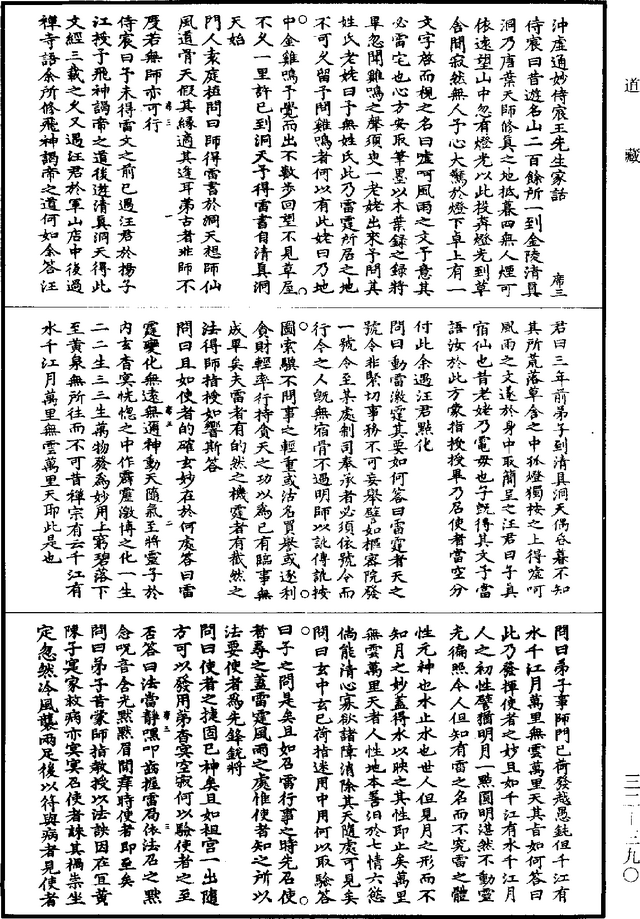 道藏
沖虛通妙侍宸王先生家話　席三
侍宸曰昔遊名山二百餘所一到金陵清真
洞乃唐葉天師修真之地抵暮四無人煙可
依遠望山中忽有燈光以此投奔燈光到草
舍間寂然無人予心大驚於燈下卓上有一
文字啓而視之名曰噓呵風雨之文予意其
必雷宅也心方安取筆墨以木葉錄之錄將
畢忽聞雞鳴之聲須臾一老姥出來予問其
姓氏老姥曰予無姓氏此乃雷霆所居之地
不可久留予問雞鳴者何以有此姥曰乃地
中金雞鳴予覺而出不數步回望不見草屋
不又一里許已到洞天予得雷書自清真洞
天始
門人袁庭植問曰師得雷書於洞天想師仙
風道骨天假其緣適其逢耳弟古者非師不
度若無師亦可行
侍宸曰予未得雷文之前已過汪君於揚子
江授予飛神謁帝之道後遊清真洞天得此
文經三載之久又過汪君於軍山店中後過
禪寺語余所修飛神謁帝之道何如余答汪
君曰三年前弟子到清真洞天偶氐暮不知
其所荒落草舍之中孤燈獨按之上得噓呵
風雨之文遂於身中取簡呈之汪君曰子真
宿仙也昔老姥乃電母也子既得其文予當
語汝於此方蒙指授授畢乃召使者當空分
付此余過汪君點化
問曰動雷激霆其要如何答曰雷霆者天之
號令非緊切事務不可妄舉譬如樞密院發
一號令至某處制司奉承者必須依號令而
行今之人既無宿骨不過明師以訛傳訛按
圖索驥不問事之輕重或沽名買譽或逐利
貪財輕率行持貪天之功以為已有臨事無
成畢矣夫雷者有的然之機霆者有截然之
法得師指授如響斯答
問曰且如使者的確玄妙在於何處答曰雷
霆變化無遠無邇神動天隨氣至將靈子於
內玄杳冥恍惚之中作霹靂激博之化一生
二二生三三生萬物發為妙用上窮碧落下
至黃泉無所往而不可昔禪宗有云千江有
水千江月萬里無雲萬里天耶此是也
問曰弟子事師門已荷發越愚鈍但千江有
水千江月萬里無雲萬里天其旨如何答曰
此乃發揮使者之妙且如千江有水千江月
人之初性譬猶明月一點圓明湛然不動靈
光徧照今人但知有雷之名而不究雷之體
性元神也水止水也世人但見月之形而不
知月之妙蓋得水以映之其性即止矣萬里
無雲萬里天者人性地本善汨於七情六慾
倘能清心寡欲諸障消除其天隨處可見矣
問曰玄中玄已荷指迷用中用何以取驗答
曰子之問是矣且如召雷行事之時先召使
者尋之蓋雷霆風雨之處惟使者知之所以
法要使者為先鋒銳將
問曰使者之捷固已神矣且如祖宫一出隨
方可以發用弟杳冥空寂何以驗使者之
否答曰法當靜嘿叩齒握雷局依法召之默
念呪音含光默默眉間痒時使者即至矣
問曰弟子昔蒙師指教授以法訣因在宜黄
陳子寔家救病亦寔冥召使者誅其禍祟坐
定忽然冷風襲兩足後以符與病者見使者
三二—三九〇